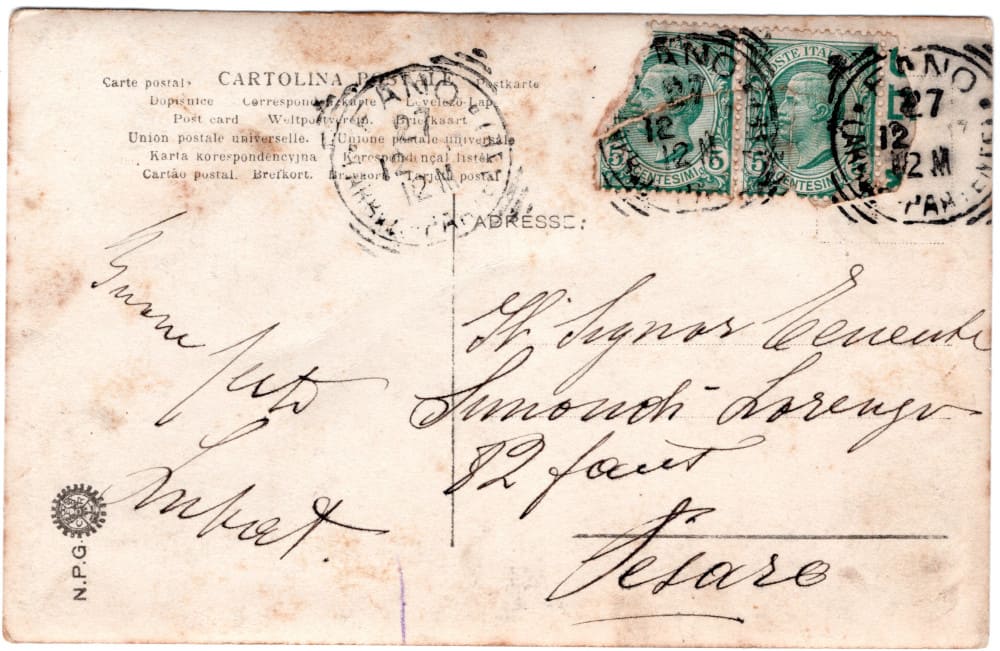 Carte postale CARTOLINA POSTALE Postkarte
Dopisnice Correspondenzkarte Levelező-Lap
Post card Weltpostverein. Briefkaart
Union postale universelle. Unione postale universale
Karta korespondencyjna Korespondinçal listek
Cartão postal. Brefkort. Brevkort. Tarjeta postal
ANO
27
12
12 M
POSTE ITAL
5 CENTESIMI 5
5 CENTESIMI
ANO
27
12
12 M
PARTENZA
ADRESSE:
Buone
feste
Al Signor Tenente
Simondi Lorenzo
82 fant
Pesaro
N.P.G.